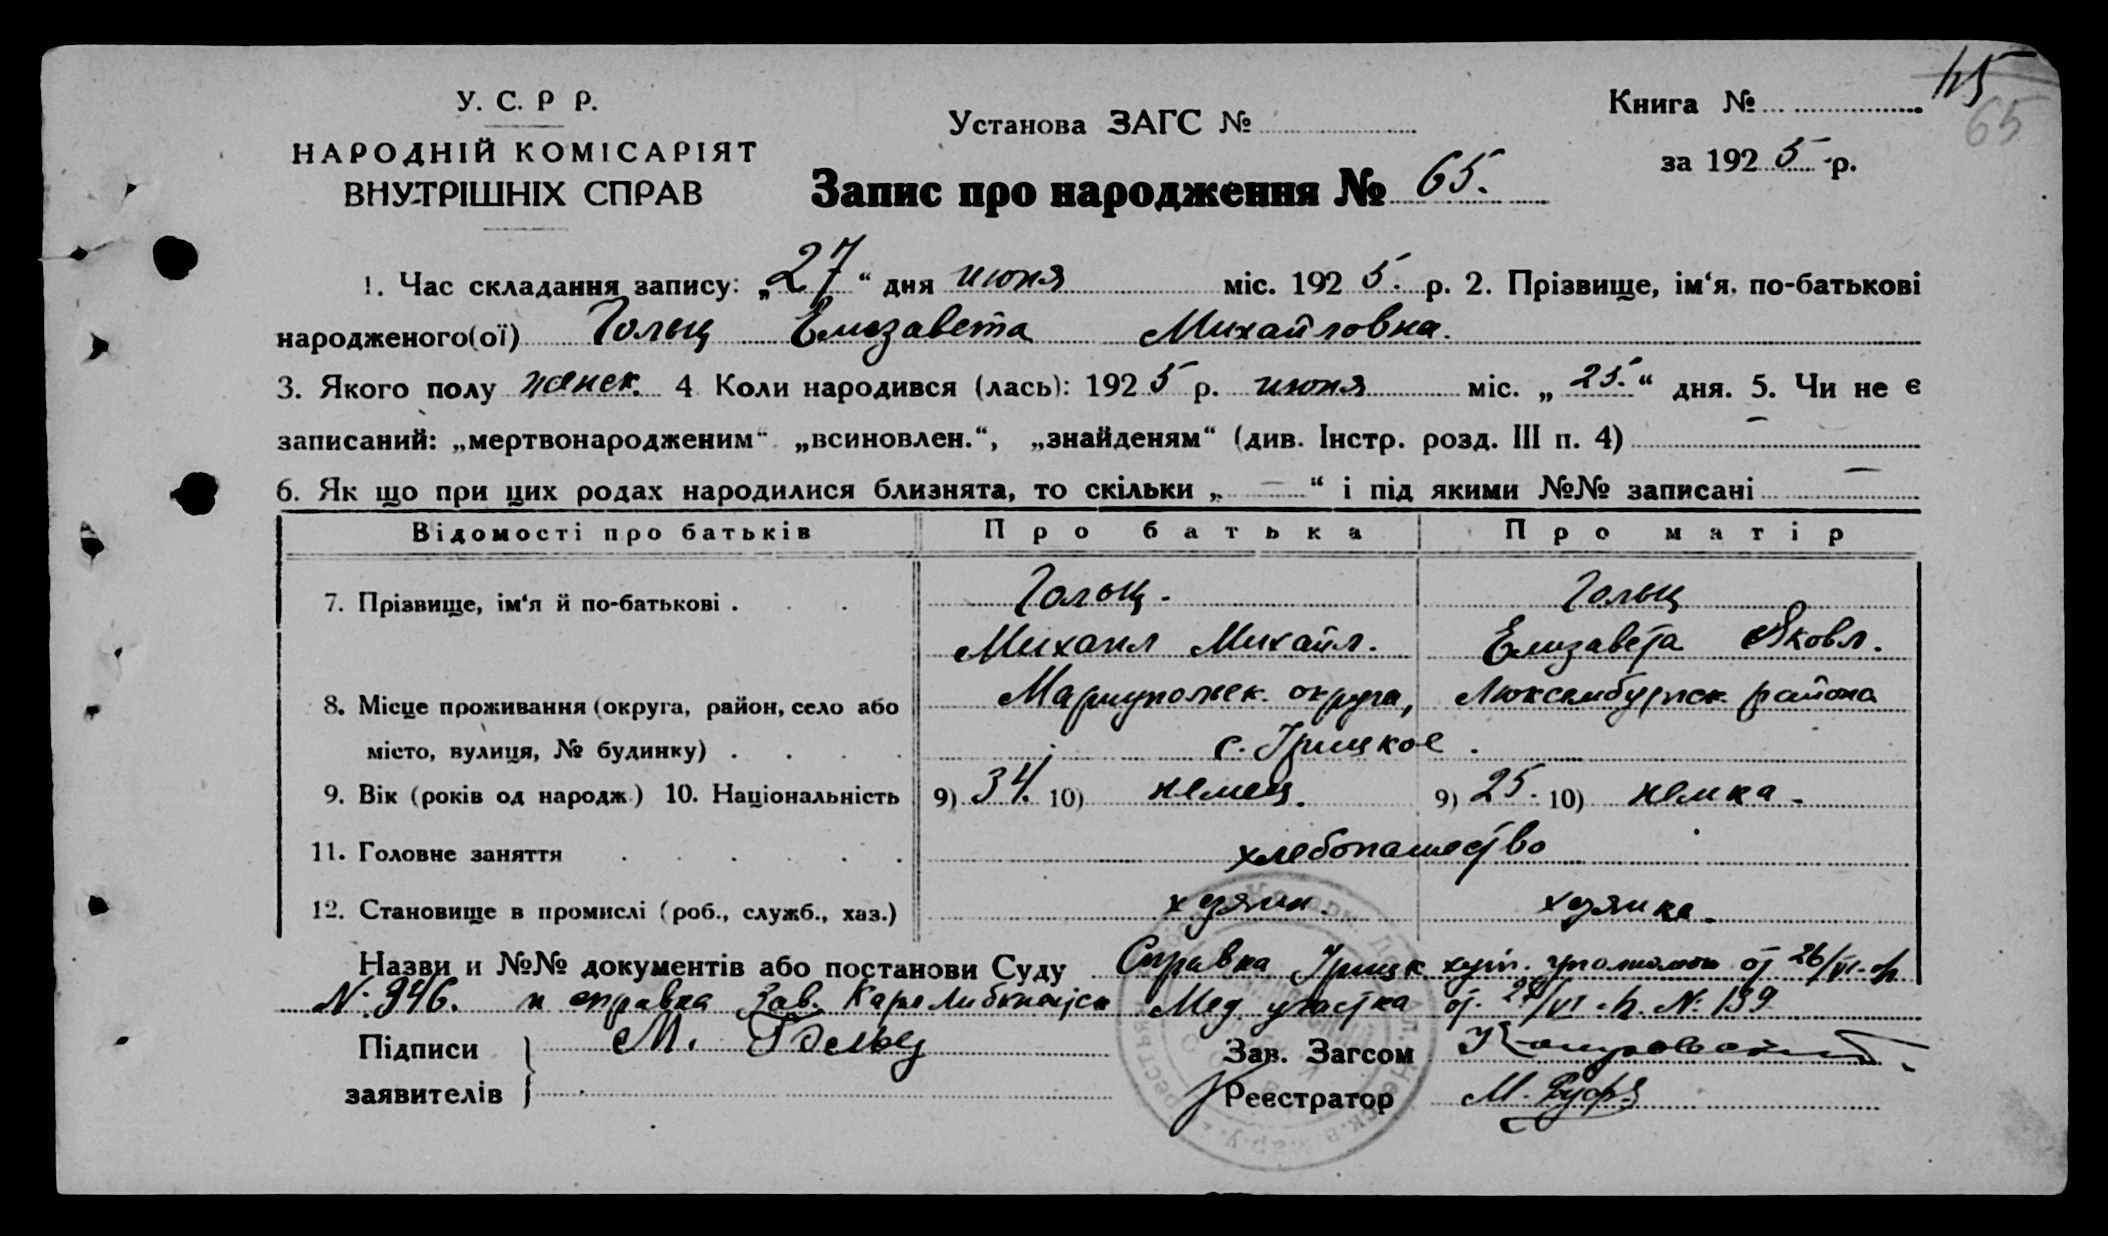 115
65
У. С. Р Р.
НАРОДНІЙ КОМІСАРІЯТ
ВНУТРІШНІХ СПРАВ
Установа ЗАГС №
Книга №
за 1925 р.
Запис про народження № 65.
1. Час складання запису: „27“ дня июня міс. 1925. р. 2. Прізвище, ім‘я, по-батькові
народженого(ої) Гольц Елизавета Михайловна.
3. Якого полу женск. 4 Коли народився (лась): 1925 р. июня міс. „25.“ дня. 5. Чи не є
записаний: „мертвонародженим“ „всиновлен.“, „знайденям“ (див. Інстр. розд. III п. 4) —
6. Як що при цих родах народилися близнята, то скільки „—“ і під якими №№ записані —
Відомості про батьків Про батька Про матір
7. Прізвище, ім‘я й по-батькові . Гольц. Гольц
Михаил Михайл. Елизавета Яковл.
8. Місце проживання (округа, район, село або Мариупольск. округа, Люксембургск. района
місто, вулиця, № будинку) с. Грицкое.
9. Вік (років од народж.) 10. Національність 9) 34. 10) немец. 9) 25. 10) немка.
11. Головне заняття хлебопашество
12. Становище в промислі (роб., служб., хаз.) хозяин. хозяйка.
Назви и №№ документів або постанови Суду Справка Грицк. от 26/VI
№ 946. и справка Зав. Мед участка от 27/VI № 139
Підписи М. Гольц Зав. Загсом
заявителів Реєстратор М.